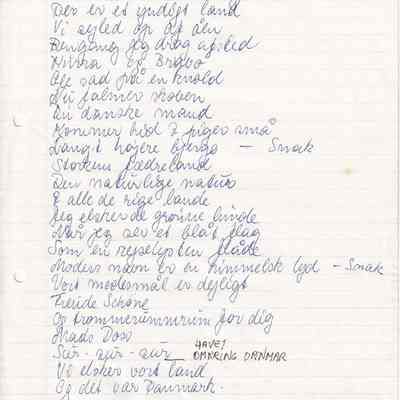 Der er et yndigt land
Vi sejled op af åen
Dengang jeg drog afsted
Ninna og Bravo
Ole sad på en knold
Nu falmer skoven
En danske mand
Kommer hid I piger små
Langt højere bjerge — Smak
Storkens fædreland
Den naturlige natur
I alle de rige lande
Jeg elsker de grønne lunde
Når jeg ser et blåt flag
Som en rejselysten flåde
Moders navn er en himmelsk lyd – Smak
Vort modersmål er dejligt
Freude Schöne
Og trommerummrum for dig
Mads Doss
Sur - sur - sur HAVET OMKRING DANMAR
Vi elsker vort land
Og det var Danmark.